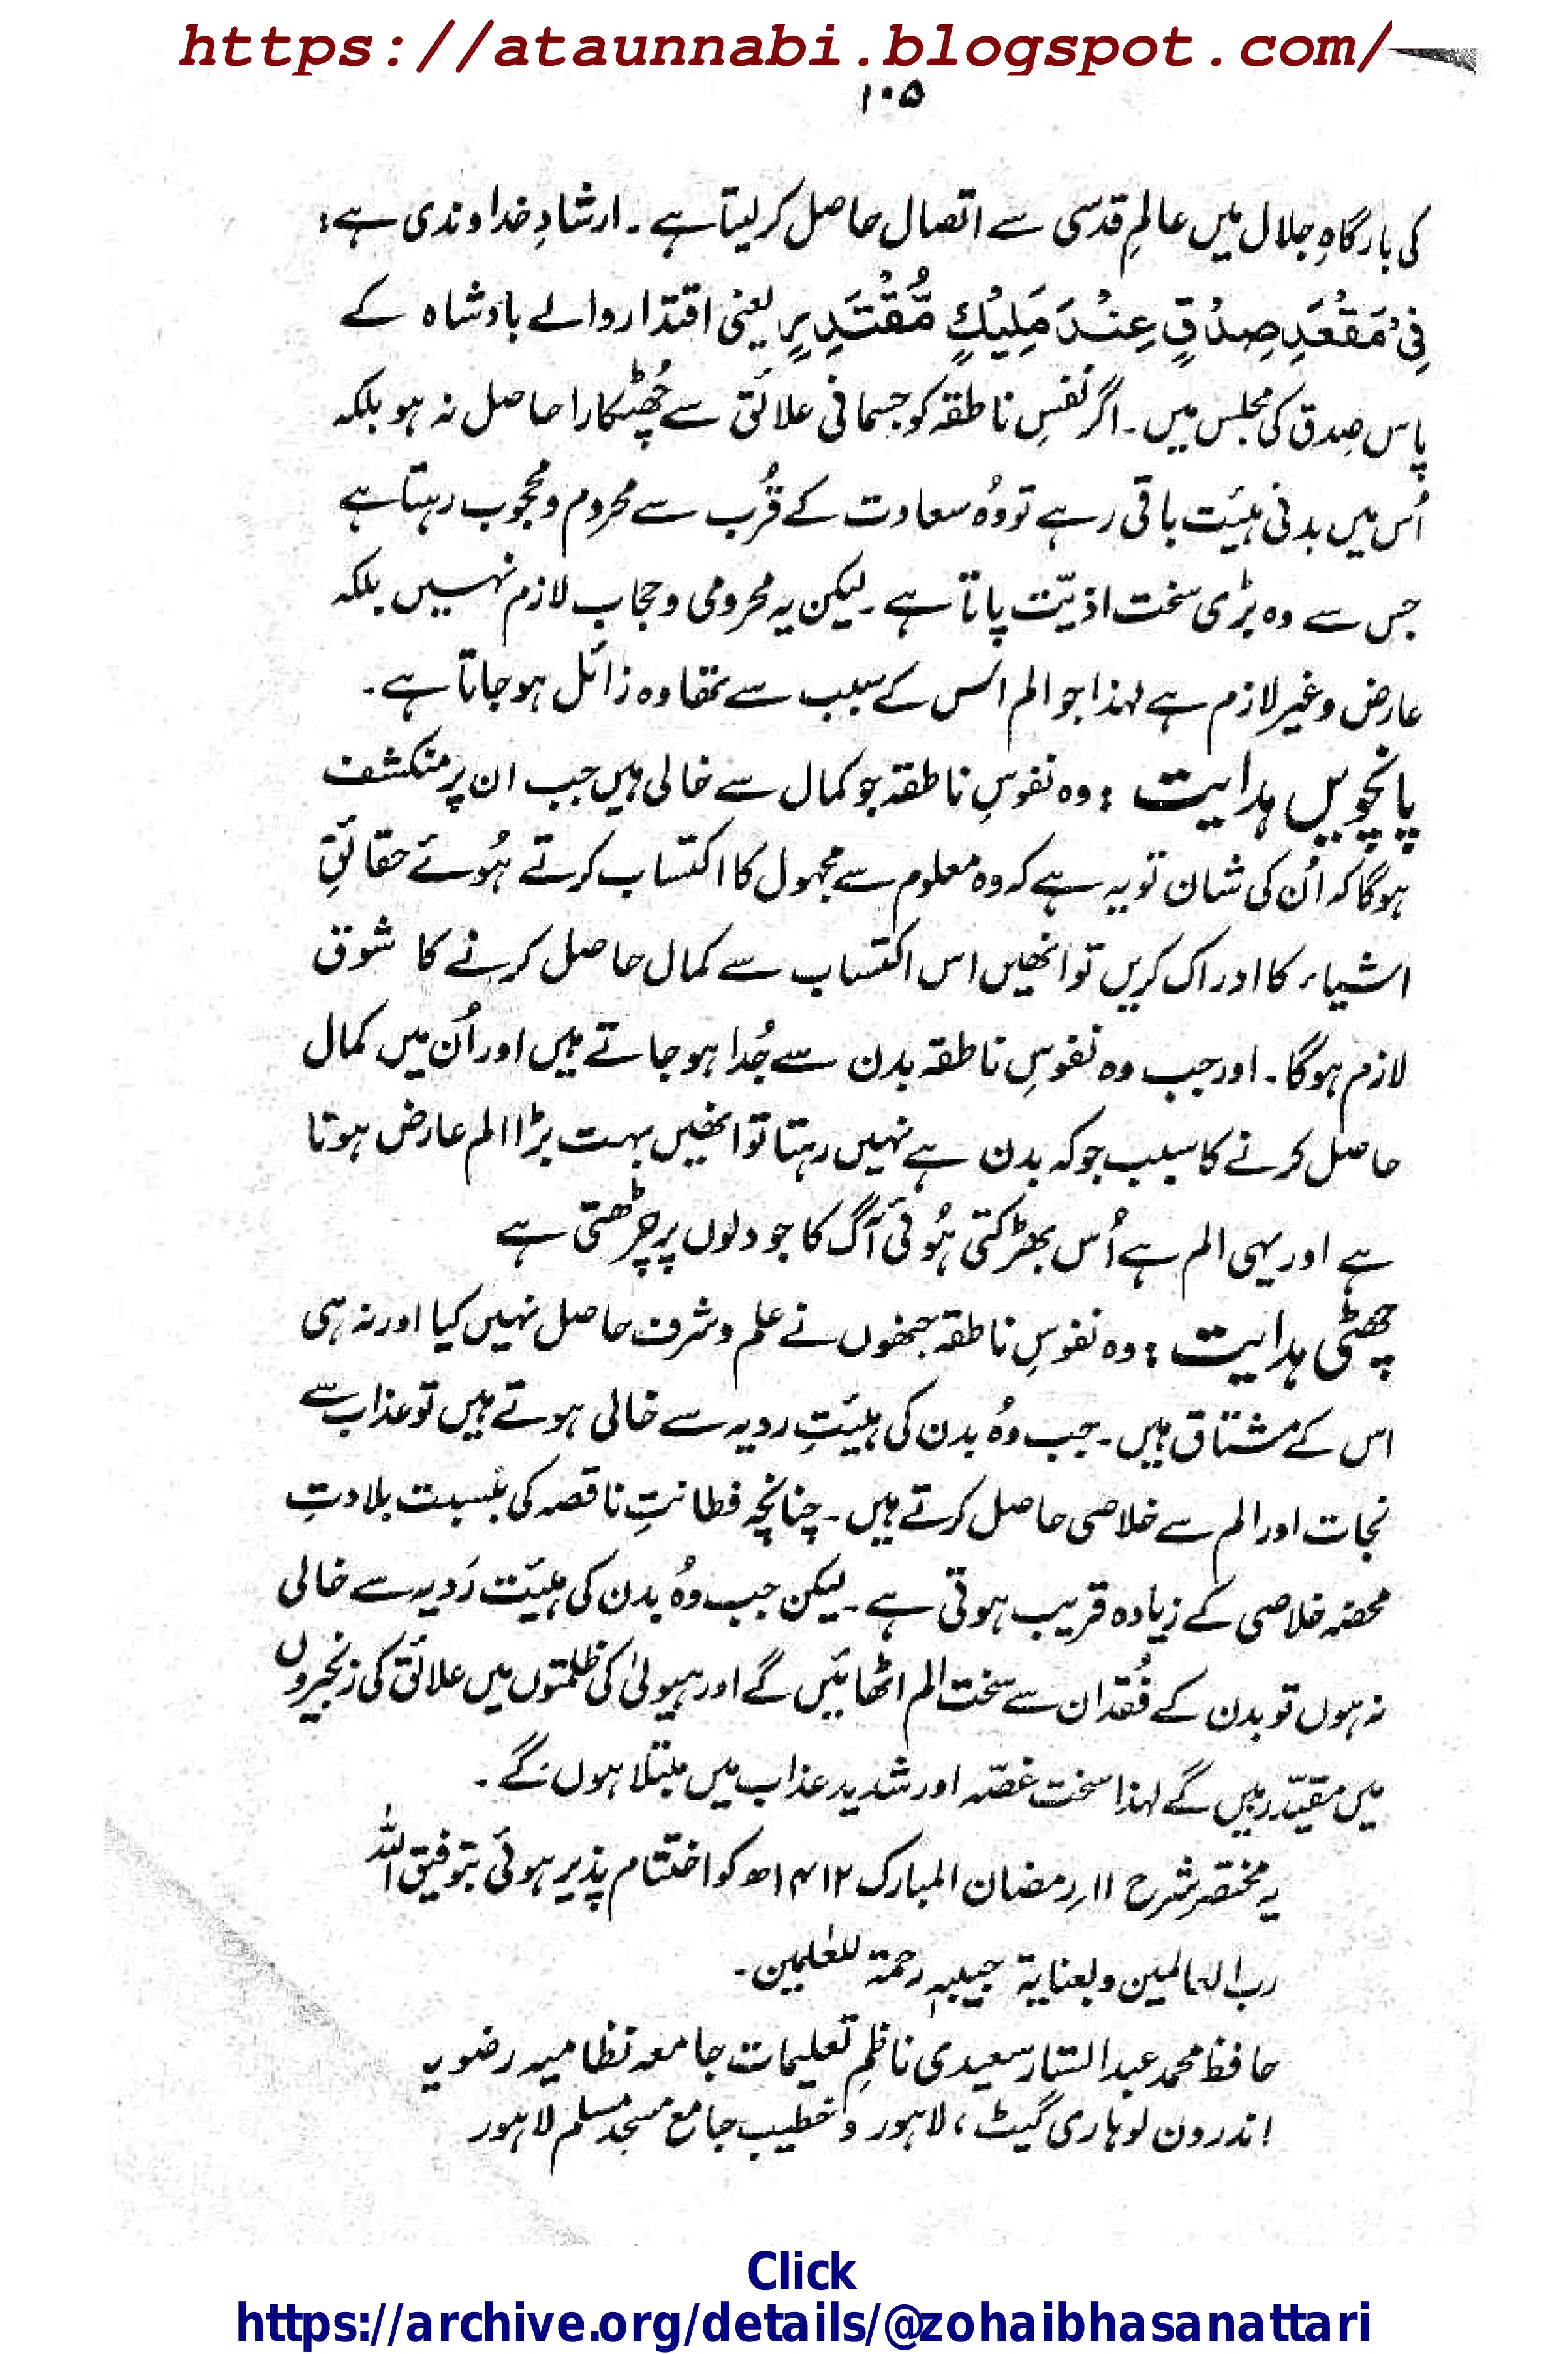 https://ataunnabi.blogspot.com/
۱۰۵
کی بارگاہِ جلال میں عالمِ قدسی سے اتصال حاصل کر لیتا ہے۔ ارشادِ خداوندی ہے:
فِیْ مَقْعَدِ صِدْقٍ عِنْدَ مَلِیْكٍ مُّقْتَدِرٍ یعنی اقتدار والے بادشاہ کے
پاس صِدق کی مجلس میں۔ اگر نفسِ ناطقہ کو جسمانی علائق سے چُھٹکارا حاصل نہ ہو بلکہ
اُس میں بدنی ہیئت باقی رہے تو وُہ سعادت کے قُرب سے محروم و محجوب رہتا ہے
جس سے وہ بڑی سخت اذیّت پاتا ہے۔ لیکن یہ محرومی و حجاب لازم نہیں بلکہ
عارض و غیر لازم ہے لہذا جو الم اس کے سبب سے تھا وہ زائل ہو جاتا ہے۔
پانچویں ہدایت : وہ نفوسِ ناطقہ جو کمال سے خالی ہیں جب ان پر منکشف
ہوگا کہ اُن کی شان تو یہ ہے کہ وہ معلوم سے مجہول کا اکتساب کرتے ہُوئے حقائقِ
اشیاء کا ادراک کریں تو انھیں اس اکتساب سے کمال حاصل کرنے کا شوق
لازم ہوگا۔ اور جب وہ نفوسِ ناطقہ بدن سے جُدا ہو جاتے ہیں اور اُن میں کمال
حاصل کرنے کا سبب جو کہ بدن ہے نہیں رہتا تو انھیں بہت بڑا الم عارض ہوتا
ہے اور یہی الم ہے اُس بھڑکتی ہُوئی آگ کا جو دلوں پر چڑھتی ہے
چھٹی ہدایت : وہ نفوسِ ناطقہ جنھوں نے علم و شرف حاصل نہیں کیا اور نہ ہی
اس کے مشتاق ہیں۔ جب وُہ بدن کی ہیئتِ ردیہ سے خالی ہوتے ہیں تو عذاب سے
نجات اور الم سے خلاصی حاصل کرتے ہیں۔ چنانچہ فطانتِ ناقصہ کی بنسبت بلادتِ
محضہ خلاصی کے زیادہ قریب ہوتی ہے۔ لیکن جب وُہ بدن کی ہیئت رَدیہ سے خالی
نہ ہوں تو بدن کے فُقدان سے سخت الم اٹھائیں گے اور ہیولیٰ کی ظلمتوں میں علائق کی زنجیروں
میں مقیّد رہیں گے لہذا سخت غصّہ اور شدید عذاب میں مبتلا ہوں گے۔
یہ مختصر شرح ۱۱ رمضان المبارک ۱۴۱۲ھ کو اختتام پذیر ہوئی بتوفیق اللہ
رب العالمین وبعنایة حبیبہٖ رحمة للعٰلمین۔
حافظ محمد عبدالستار سعیدی ناظمِ تعلیمات جامعہ نظامیہ رضویہ
اندرون لوہاری گیٹ، لاہور و خطیب جامع مسجد مسلم لاہور
Click
https://archive.org/details/@zohaibhasanattari